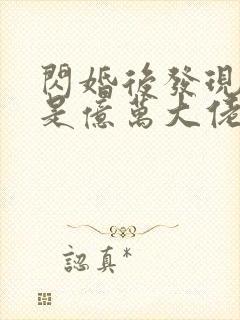 閃婚後發現
是億萬大佬
認真*